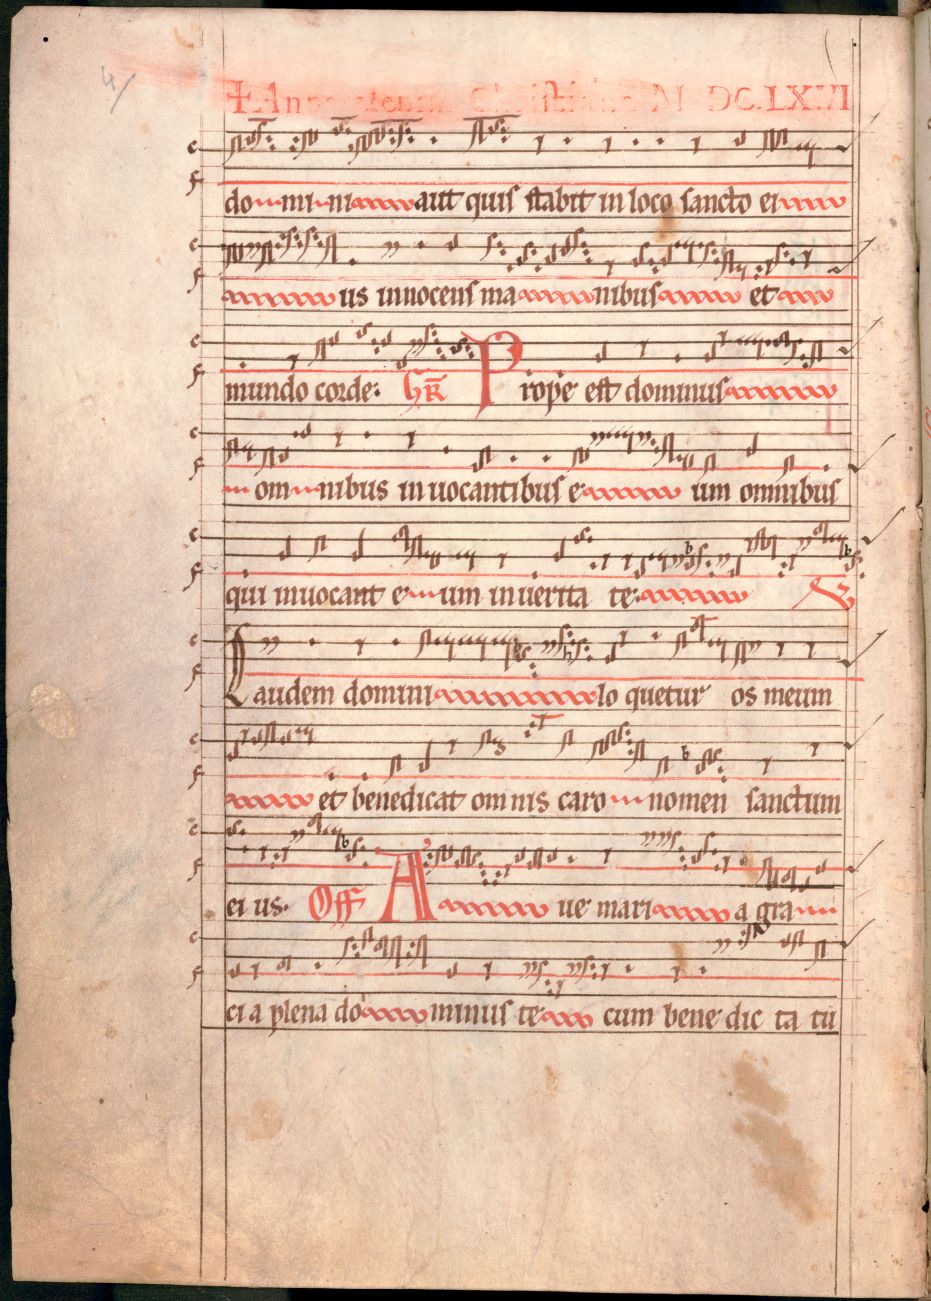 4/
M DC.LXVI
do mi ni aut quis stabit in loco sancto ei
us innocens ma nibus et
mundo corde: P rope est dominus
om nibus in uocantibus e um omnibus
qui inuocant e um in uerita te.
Laudem domini lo quetur os meum
et benedicat om nis caro nomen sanctum
ei us. Off A ue mari a gra
ci a plena do minus te cum bene dic ta tu